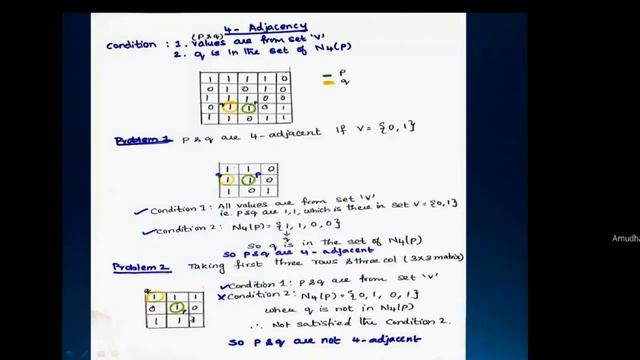 4 - Adjacency
(P & q)
Condition : 1. Values are from set 'V'
2. q is in the set of N4(P)
1 1 1 1 0
0 1 0 1 0
1 1 1 0 0
0 1 1 0 1
1 1 0 1 1
P
q
Problem 1 P & q are 4-adjacent if V = {0,1}
1 1 0
q 1 1 P 0
1 0 1
✓ Condition 1 : All values are from set 'V'
ie. P & q are 1,1, which is there in set V = {0,1}
✓ Condition 2 : N4(P) = {1, 1, 0, 0}
q
So q is in the set of N4(P)
So P & q are 4-adjacent
Problem 2 Taking first three rows & three col (3x3 matrix)
✓ Condition 1 : P & q are from set 'V'
x Condition 2 : N4(P) = {0, 1, 0, 1}
where q is not in N4(P)
∴ Not satisfied the Condition 2.
q
1 1 1
0 1 0
1 1
So P & q are not 4-adjacent
Amudha